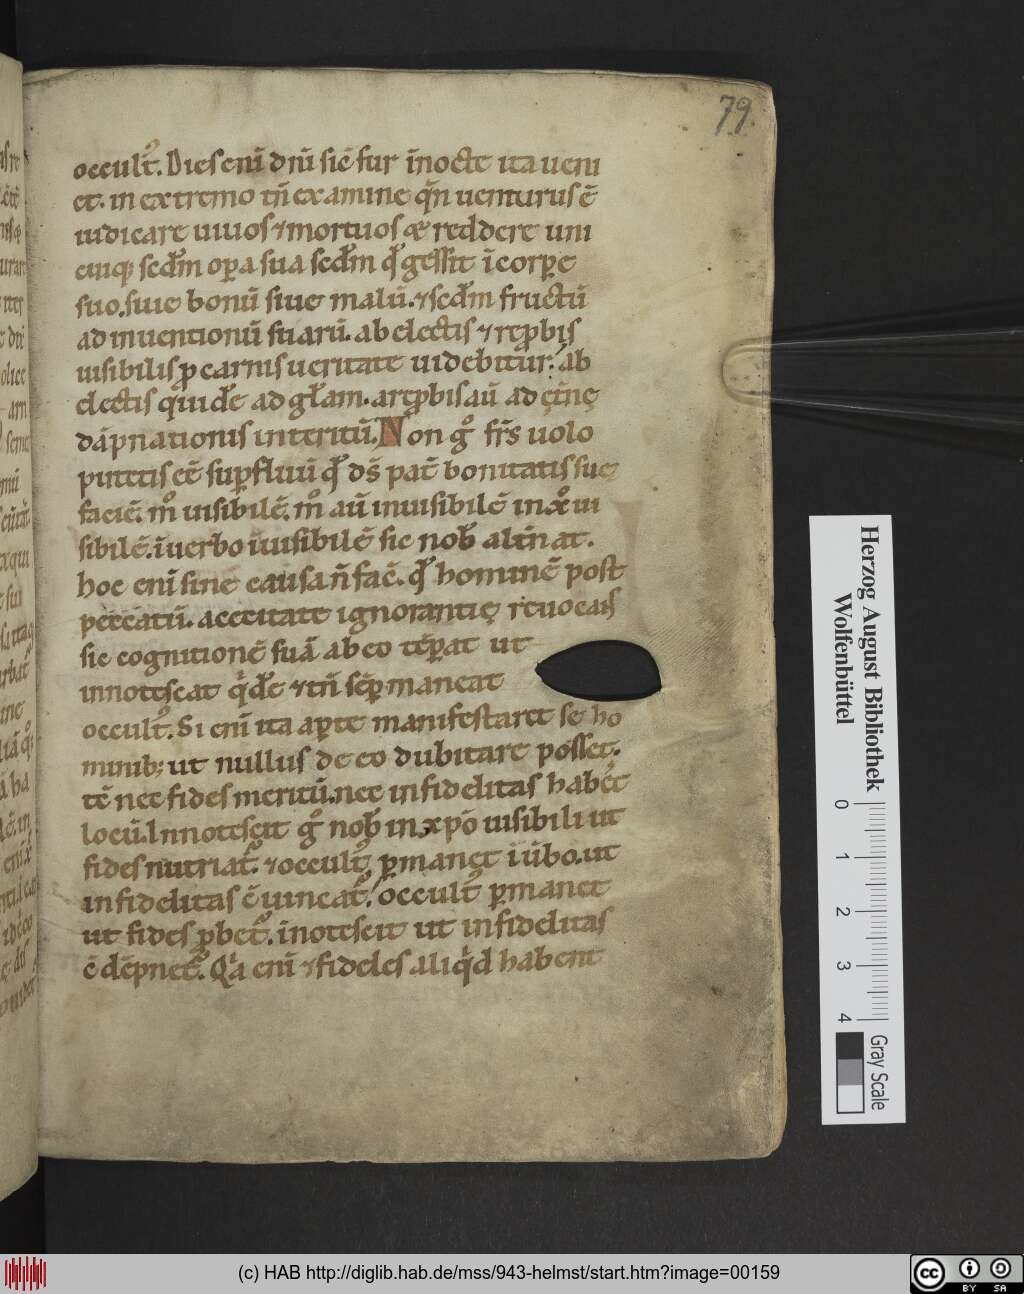 79
occult᷒. Dies eni̅ dn̅i sic̅ fur i̅nocte ita ueni
et. in extremo tn̅ examine q̅n uenturus ē
iudicare uiuos ⁊ mortuos æ reddere uni
cuiq; scd̅m op̲a sua scd̅m qd̅ gessit i̅ corp̲e
suo. siue bonu̅ siue malu̅. ⁊ scd̅m fructu̅
ad inuentionu̅ suaru̅. ab electis ⁊ rep̲bis
uisibilis p̲ carnis ueritate uidebitur. ab
electis quide̅ ad gl̅am. a rep̲bis au̅ ad
da̅pnationis interitu̅. Non gͦ fr̅s uolo
putetis ee̅ sup̲fluu̅ qd̅ ds̅ pat̅ bonitatis sue
facie̅. mͦ uisibile̅. mͦ au̅ inuisibile̅ in xͦ ui
sibile̅. i̅ uerbo iuisibile̅ sic nob̅ alt̅nat.
hoc eni̅ sine causa n̅ fac̅. qd̅ homine̅ post
peccatu̅. a cecitate ignorantię reuocas
sic cognitione̅ sua̅ ab eo te̅p̲at ut
innotescat qͥde̅ ⁊ tn̅ se̅p̲ maneat
occult᷒. Si eni̅ ita ap̲te manifestaret se ho
minib; ut nullus de eo dubitare posset.
te̅ nec fides meritu̅. nec infidelitas habe̅t
locu̅. Innotescit gͦ nob̅ in xp̅o uisibili ut
fides nutriat᷒. ⁊ occult᷒ p̲manet i̅ u̅bo. ut
infidelitas c̅uincat᷒. occult᷒ p̲manet
ut fides p̲bet᷒. i̅notescit ut infidelitas
c̅de̅pnet᷒. Qͥa eni̅ ⁊ fideles aliqͥd habent
Herzog August Bibliothek
Wolfenbüttel
0 1 2 3 4
Gray Scale
(c) HAB http://diglib.hab.de/mss/943-helmst/start.htm?image=00159
cc BY SA